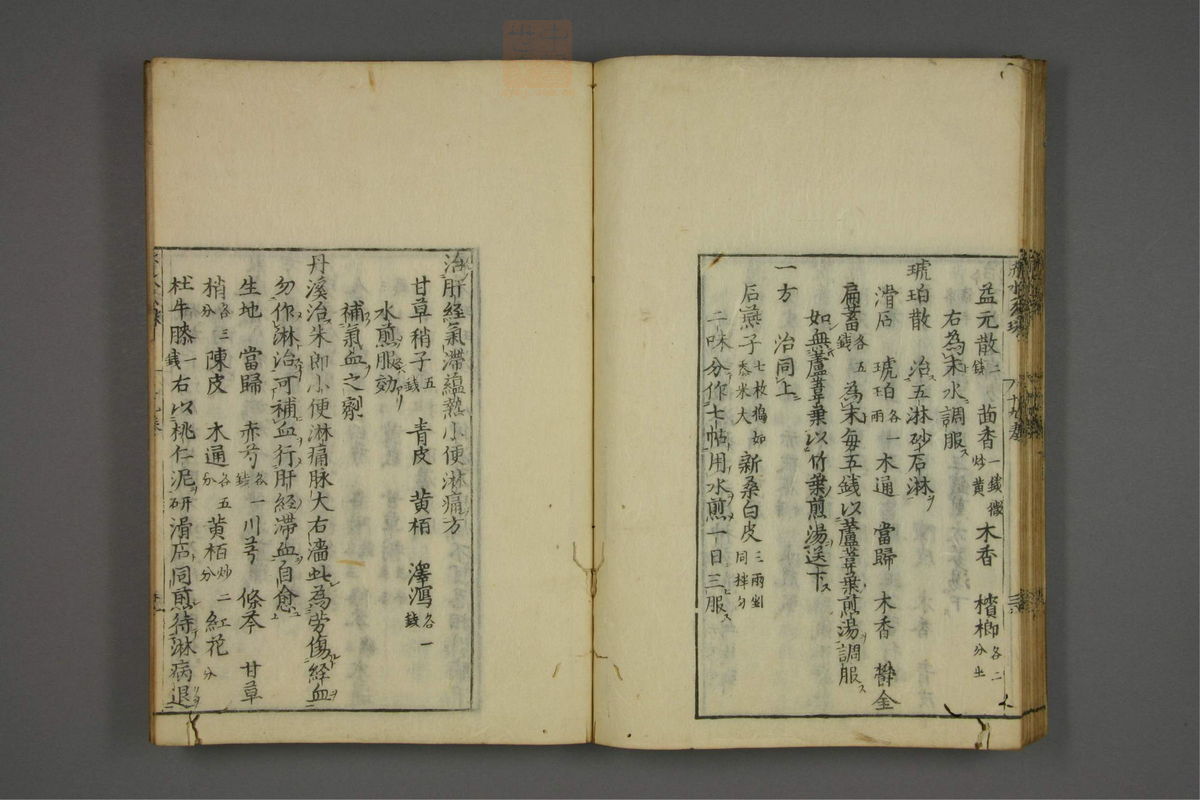 益元散 二錢 茴香 一錢微炒黄 木香 檳榔 各二分半
右為末水調服
琥珀散 治五淋砂石淋
滑石 琥珀 各一兩 木通 當歸 木香 欝金
扁蓄 各五錢 為末每五錢以蘆葦葉煎湯調服
如無蘆葦葉以竹葉煎湯送下
一方 治同上
石燕子 七枚搗如黍米大 新桑白皮 三兩剉同拌匀
二味分作七帖用水煎一日三服
治肝経氣滯蘊熱小便淋痛方
甘草稍子 五錢 青皮 黄栢 澤瀉 各一錢
水煎服効
補氣血之劑
丹溪治朱郎小便淋痛脉大右濇此為労傷経血
勿作淋治可補血行肝経滯血自愈
生地 當歸 赤芍 各一錢 川芎 條芩 甘草
梢 各三分 陳皮 木通 各五分 黄栢 炒二分 紅花 分
杜牛膝 一錢 右以桃仁泥研滑石同煎待淋病退